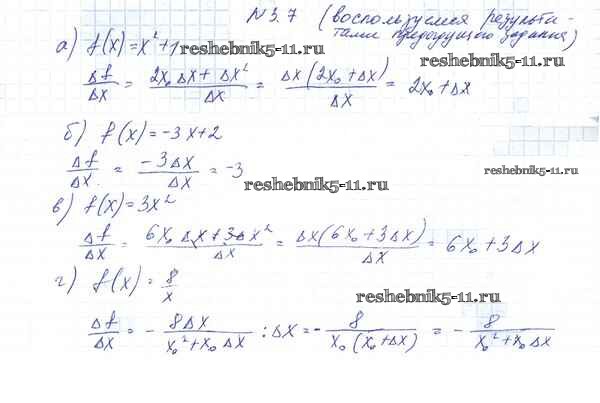 №3.7 (воспользуемся результа-
тами предыдущего задания)
а) f(x)=x²+1
reshebnik5-11.ru
Δf/Δx = (2x₀Δx+Δx²)/Δx = Δx(2x₀+Δx)/Δx = 2x₀+Δx
reshebnik5-11.ru
б) f(x)=-3x+2
Δf/Δx = -3Δx/Δx = -3
reshebnik5-11.ru
reshebnik5-11.ru
в) f(x)=3x²
Δf/Δx = (6x₀Δx+3Δx²)/Δx = Δx(6x₀+3Δx)/Δx = 6x₀+3Δx
г) f(x)=8/x
reshebnik5-11.ru
Δf/Δx = -8Δx/(x₀²+x₀Δx) : Δx = -8/(x₀(x₀+Δx)) = -8/(x₀²+x₀Δx)